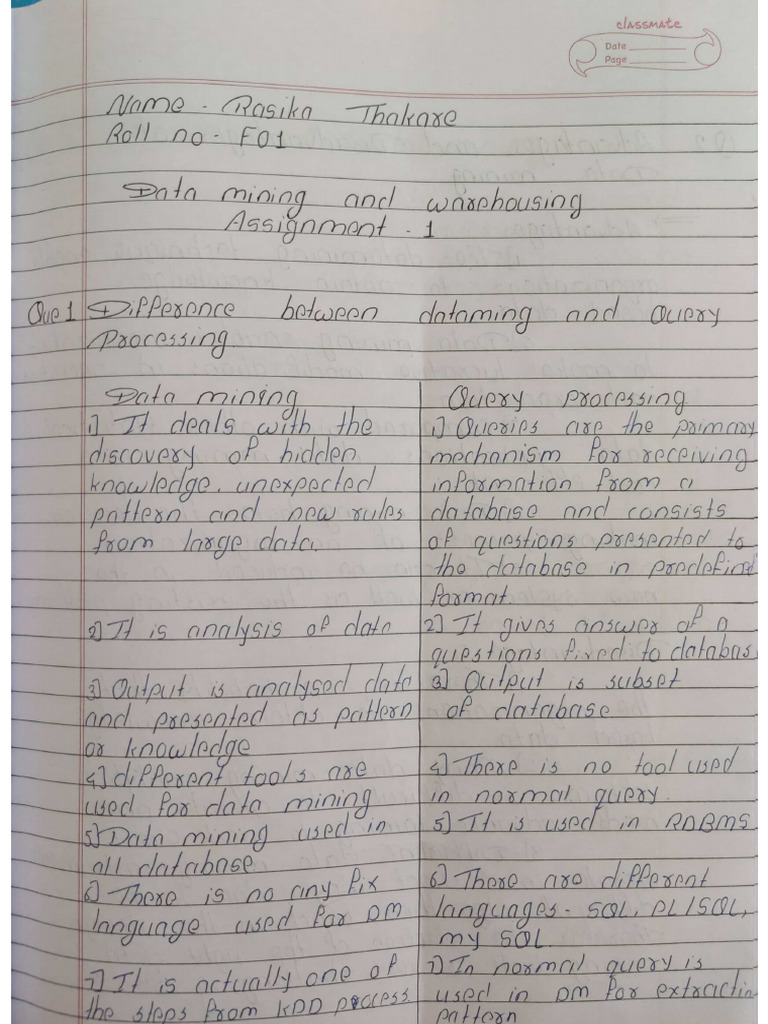 classmate
Date
Page
Name - Rasika Thakare
Roll no - F01
Data mining and warehousing
Assignment - 1
Que 1 Difference between dataming and Query
Processing.
Data mining
1) It deals with the
discovery of hidden
knowledge, unexpected
pattern and new rules
from large data.
2) It is analysis of data
3) Output is analysed data
and presented as pattern
or knowledge
4) different tools are
used for data mining
5) Data mining used in
all database
6) There is no any fix
language used for DM
7) It is actually one of
the steps from KDD process
Query processing
1) Queries are the primary
mechanism for receiving
information from a
database and consists
of questions presented to
the database in predefind
format.
2) It gives answer of a
questions fired to databas
3) Output is subset
of database
4) There is no tool used
in normal query.
5) It is used in RDBMS
6) There are different
languages - SQL, PL/SQL,
my SQL.
7) In normal query is
used in DM for extractin
pattern